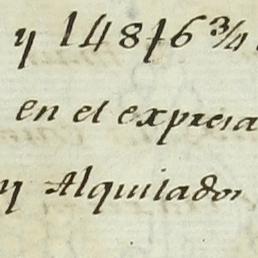 y 148f6 3/4
en el expresa
y Alquilador